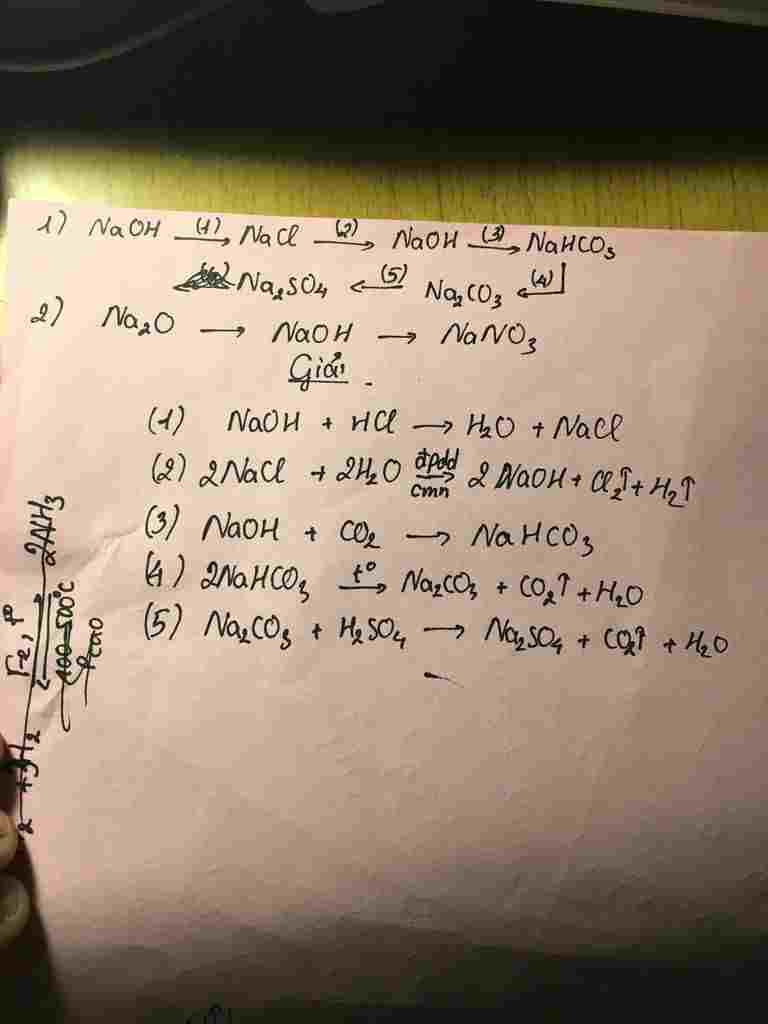 1) NaOH (1)→ NaCl (2)→ NaOH (3)→ NaHCO₃
Na₂SO₄ ←(5) Na₂CO₃ ←(4)
2) Na₂O → NaOH → NaNO₃
Giải
(1) NaOH + HCl → H₂O + NaCl
(2) 2NaCl + 2H₂O đpdd→ cmn 2NaOH + Cl₂↑ + H₂↑
(3) NaOH + CO₂ → NaHCO₃
(4) 2NaHCO₃ t°→ Na₂CO₃ + CO₂↑ + H₂O
(5) Na₂CO₃ + H₂SO₄ → Na₂SO₄ + CO₂↑ + H₂O
₂ + 3H₂ Fe, t° ⇌ 2NH₃
500°C
Pcao